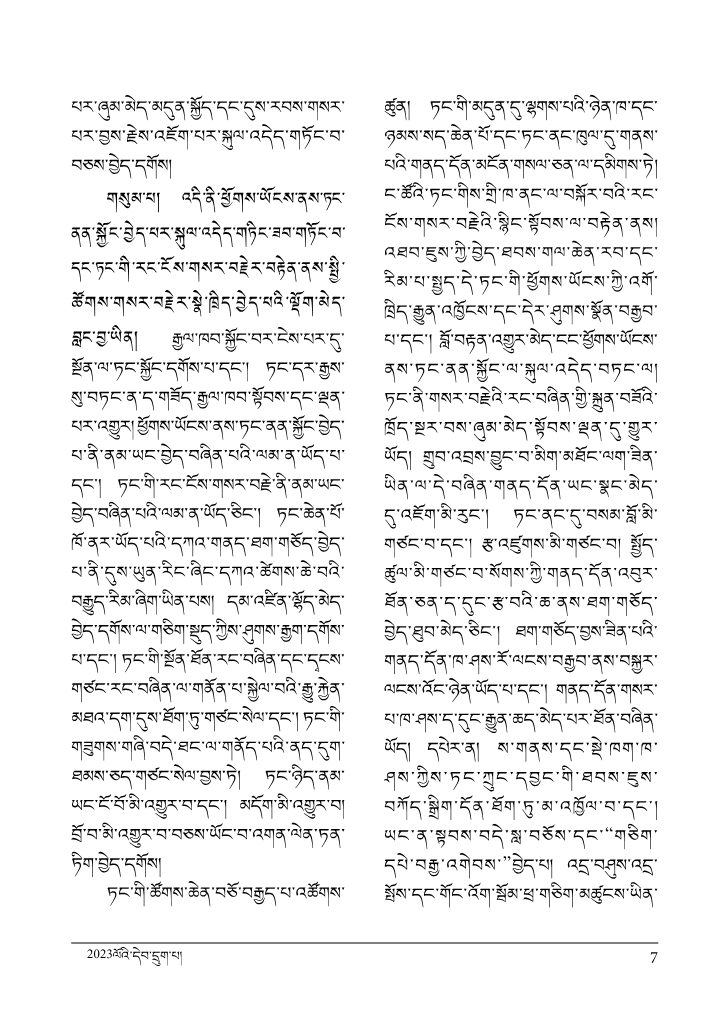 པར་ཞུམ་མེད་མདུན་སྐྱོད་དང་དུས་རབས་གསར་
པར་བྱས་རྗེས་འཇོག་པར་སྐུལ་འདེད་གཏོང་བ་
བཅས་བྱེད་དགོས།
གསུམ་པ། འདི་ནི་ཕྱོགས་ཡོངས་ནས་ཏང་
ནན་སྐྱོང་བྱེད་པར་སྐུལ་འདེད་གཏིང་ཟབ་གཏོང་བ་
དང་ཏང་གི་རང་ངོས་གསར་བརྗེ་ར་བརྟེན་ནས་སྤྱི་
ཚོགས་གསར་བརྗེ་ར་སྣེ་ཁྲིད་བྱེད་པའི་ལྡོག་མེད་
བླང་བྱ་ཡིན། རྒྱལ་ཁབ་སྐྱོང་བར་ངེས་པར་དུ་
སྔོན་ལ་ཏང་སྐྱོང་དགོས་པ་དང་། ཏང་དར་རྒྱས་
སུ་བཏང་ན་ད་གཟོད་རྒྱལ་ཁབ་སྟོབས་དང་ལྡན་
པར་འགྱུར། ཕྱོགས་ཡོངས་ནས་ཏང་ནན་སྐྱོང་བྱེད་
པ་ནི་ནམ་ཡང་བྱེད་བཞིན་པའི་ལམ་ན་ཡོད་པ་
དང་། ཏང་གི་རང་ངོས་གསར་བརྗེ་ནི་ནམ་ཡང་
བྱེད་བཞིན་པའི་ལམ་ན་ཡོད་ཅིང་། ཏང་ཆེན་པོ་
ཁོ་ནར་ཡོད་པའི་དཀའ་གནད་ཐག་གཅོད་བྱེད་
པ་ནི་དུས་ཡུན་རིང་ཞིང་དཀའ་ཚེགས་ཆེ་བའི་
བརྒྱུད་རིམ་ཞིག་ཡིན་པས། དམ་འཛིན་ལྷོད་མེད་
བྱེད་དགོས་ལ་གཅིག་སྡུད་ཀྱིས་ཤུགས་རྒྱག་དགོས་
པ་དང་། ཏང་གི་སྔོན་ཐོན་རང་བཞིན་དང་དྭངས་
གཙང་རང་བཞིན་ལ་གནོན་པ་སྐྱེལ་བའི་རྒྱུ་རྐྱེན་
མཐའ་དག་དུས་ཐོག་ཏུ་གཙང་སེལ་དང་། ཏང་གི་
གཟུགས་གཞི་བདེ་ཐང་ལ་གནོད་པའི་ནད་དུག་
ཐམས་ཅད་གཙང་སེལ་བྱས་ཏེ། ཏང་ཉིད་ནམ་
ཡང་ངོ་བོ་མི་འགྱུར་བ་དང་། མདོག་མི་འགྱུར་བ།
བྲོ་བ་མི་འགྱུར་བ་བཅས་ཡོང་བ་འགན་ལེན་ཏན་
ཏིག་བྱེད་དགོས།
ཏང་གི་ཚོགས་ཆེན་བཅོ་བརྒྱད་པ་འཚོགས་
ཚུན། ཏང་གི་མདུན་དུ་ལྷགས་པའི་ཉེན་ཁ་དང་
ཉམས་སད་ཆེན་པོ་དང་ཏང་ནང་ཁུལ་དུ་གནས་
པའི་གནད་དོན་མངོན་གསལ་ཅན་ལ་དམིགས་ཏེ།
ང་ཚོའི་ཏང་གིས་གྲི་ཁ་ནང་ལ་བསྐོར་བའི་རང་
ངོས་གསར་བརྗེའི་སྙིང་སྟོབས་ལ་བརྟེན་ནས།
འཐབ་ཇུས་ཀྱི་བྱེད་ཐབས་གལ་ཆེན་རབ་དང་
རིམ་པ་སྤྱད་དེ་ཏང་གི་ཕྱོགས་ཡོངས་ཀྱི་འགོ་
ཁྲིད་རྒྱུན་འཁྱོངས་དང་དེར་ཤུགས་སྣོན་བརྒྱབ་
པ་དང་། བློ་བརྟན་འགྱུར་མེད་ངང་ཕྱོགས་ཡོངས་
ནས་ཏང་ནན་སྐྱོང་ལ་སྐུལ་འདེད་བཏང་ལ།
ཏང་ནི་གསར་བརྗེའི་རང་བཞིན་གྱི་སྐྲུན་བཟོའི་
ཁྲོད་སྔར་བས་ཞུམ་མེད་སྟོབས་ལྡན་དུ་གྱུར་
ཡོད། གྲུབ་འབྲས་བྱུང་བ་མིག་མཐོང་ལག་ཟིན་
ཡིན་ལ་དེ་བཞིན་གནད་དོན་ཡང་སྣང་མེད་
དུ་འཇོག་མི་རུང་། ཏང་ནང་དུ་བསམ་བློ་མི་
གཙང་བ་དང་། རྩ་འཛུགས་མི་གཙང་བ། སྤྱོད་
ཚུལ་མི་གཙང་བ་སོགས་ཀྱི་གནད་དོན་འབུར་
ཐོན་ཅན་ད་དུང་རྩ་བའི་ཆ་ནས་ཐག་གཅོད་
བྱེད་ཐུབ་མེད་ཅིང་། ཐག་གཅོད་བྱས་ཟིན་པའི་
གནད་དོན་ཁ་ཤས་རོ་ལངས་བརྒྱབ་ནས་བསྐྱར་
ལངས་འོང་ཉེན་ཡོད་པ་དང་། གནད་དོན་གསར་
པ་ཁ་ཤས་ད་དུང་རྒྱུན་ཆད་མེད་པར་ཐོན་བཞིན་
ཡོད། དཔེར་ན། ས་གནས་དང་སྡེ་ཁག་ཁ་
ཤས་ཀྱིས་ཏང་ཀྲུང་དབྱང་གི་ཐབས་ཇུས་
བཀོད་སྒྲིག་དོན་ཐོག་ཏུ་མ་འཁྱོལ་བ་དང་།
ཡང་ན་སྟབས་བདེ་སླ་བཅོས་དང་“གཅིག་
དཔེ་བརྒྱ་འགེབས་”བྱེད་པ། འདྲ་བཤུས་འདྲ་
སྤོས་དང་གོང་འོག་སྦོམ་ཕྲ་གཅིག་མཚུངས་ཡིན་
2023ལོའི་དེབ་དྲུག་པ།
7